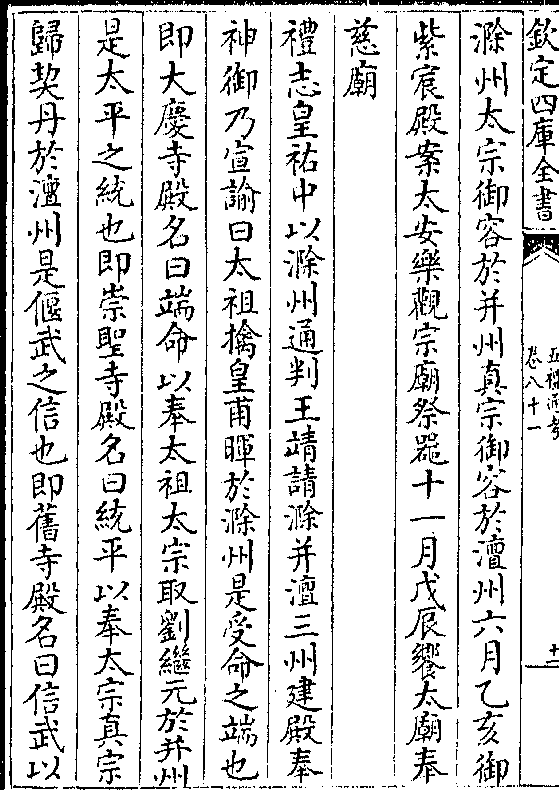 欽定四庫全書
卷八十一
五禮通考
十二
滁州太宗御容於并州真宗御容於澶州六月乙亥御
紫宸殿案太安樂觀宗廟祭器十一月戊辰饗太廟奉
慈廟
禮志皇祐中以滁州通判王靖請滁并澶三州建殿奉
神御乃宣諭曰太祖擒皇甫暉於滁州是受命之端也
即大慶寺殿名曰端命以奉太祖太宗取劉繼元於并州
是太平之統也即崇聖寺殿名曰統平以奉太宗真宗
歸契丹於澶州是偃武之信也即舊寺殿名曰信武以